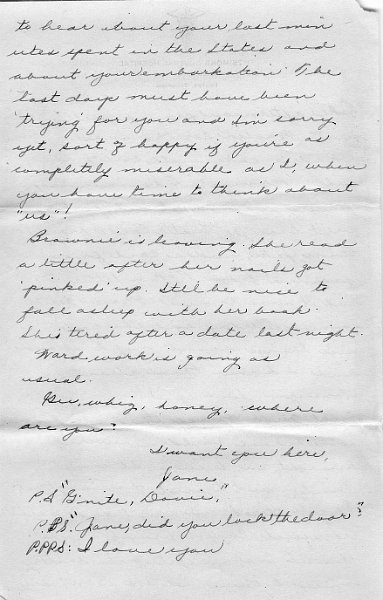 to hear about your last min
utes spent in the States and
about your embarkation. The
last days must have been
trying for you and I'm sorry
yet, sort of happy if you're as
completely miserable as I, when
you have time to think about
"us"!
Brownie is leaving. She read
a little after her nails got
'pinked' up. It'll be nice to
fall asleep with her book.
She's tired after a date last night.
Ward work is going as
usual.
Gee, whiz, honey, where
are you?
I want you here,
Jane
P.S. "G'nite, Davie,"
P.P.S. "Jane, did you lock the door?"
P.P.P.S: I love you